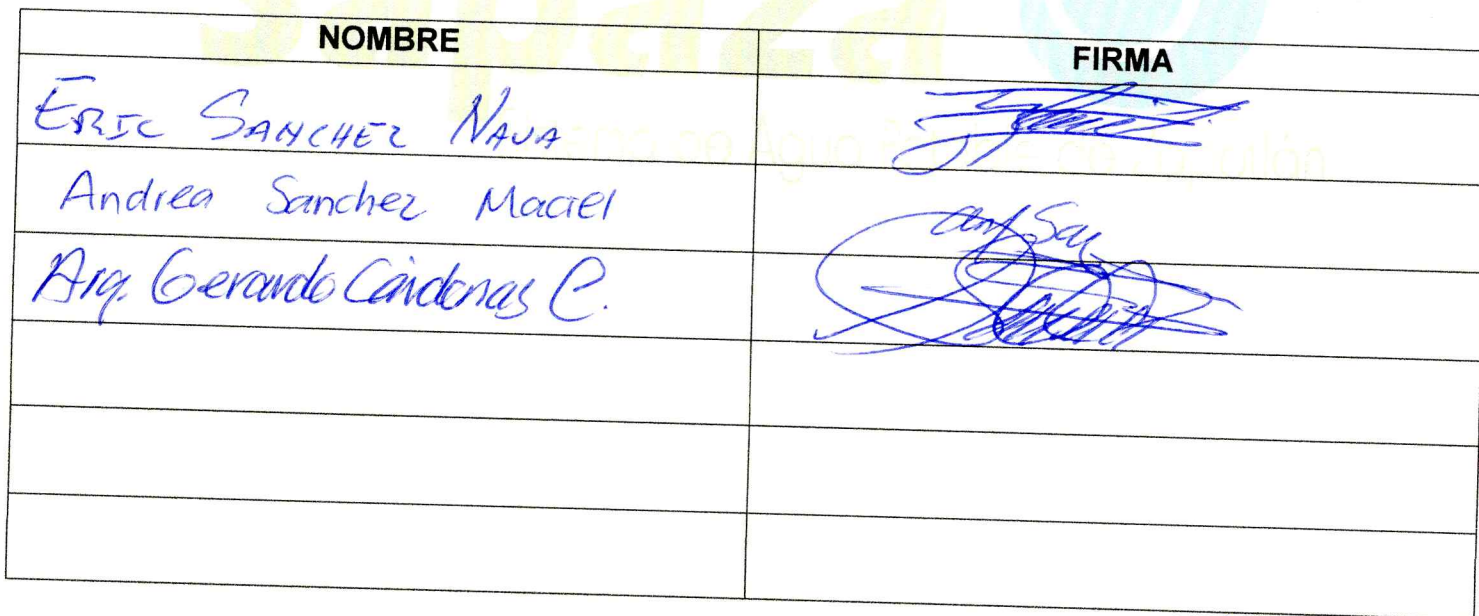 NOMBRE FIRMA
ERIC SANCHEZ NAVA
Andrea Sanchez Maciel
Arq. Gerardo Cárdenas C.